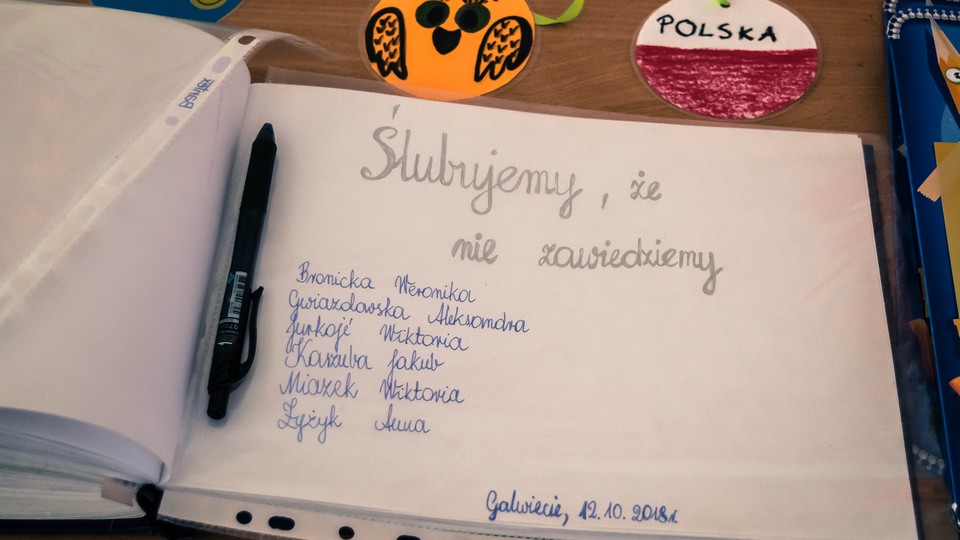 POLSKA
Ślubujemy, że
nie zawiedziemy
Bronicka Weronika
Gwiazdowska Aleksandra
Jurkojć Wiktoria
Karuba Jakub
Miazek Wiktoria
Zyżyk Anna
Galwiecie, 12.10.2018r.